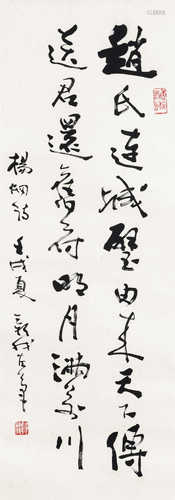 趙氏連城璧由来天下傳
送君還舊府明月滿前川
楊炯詩 壬戌夏 新我左筆